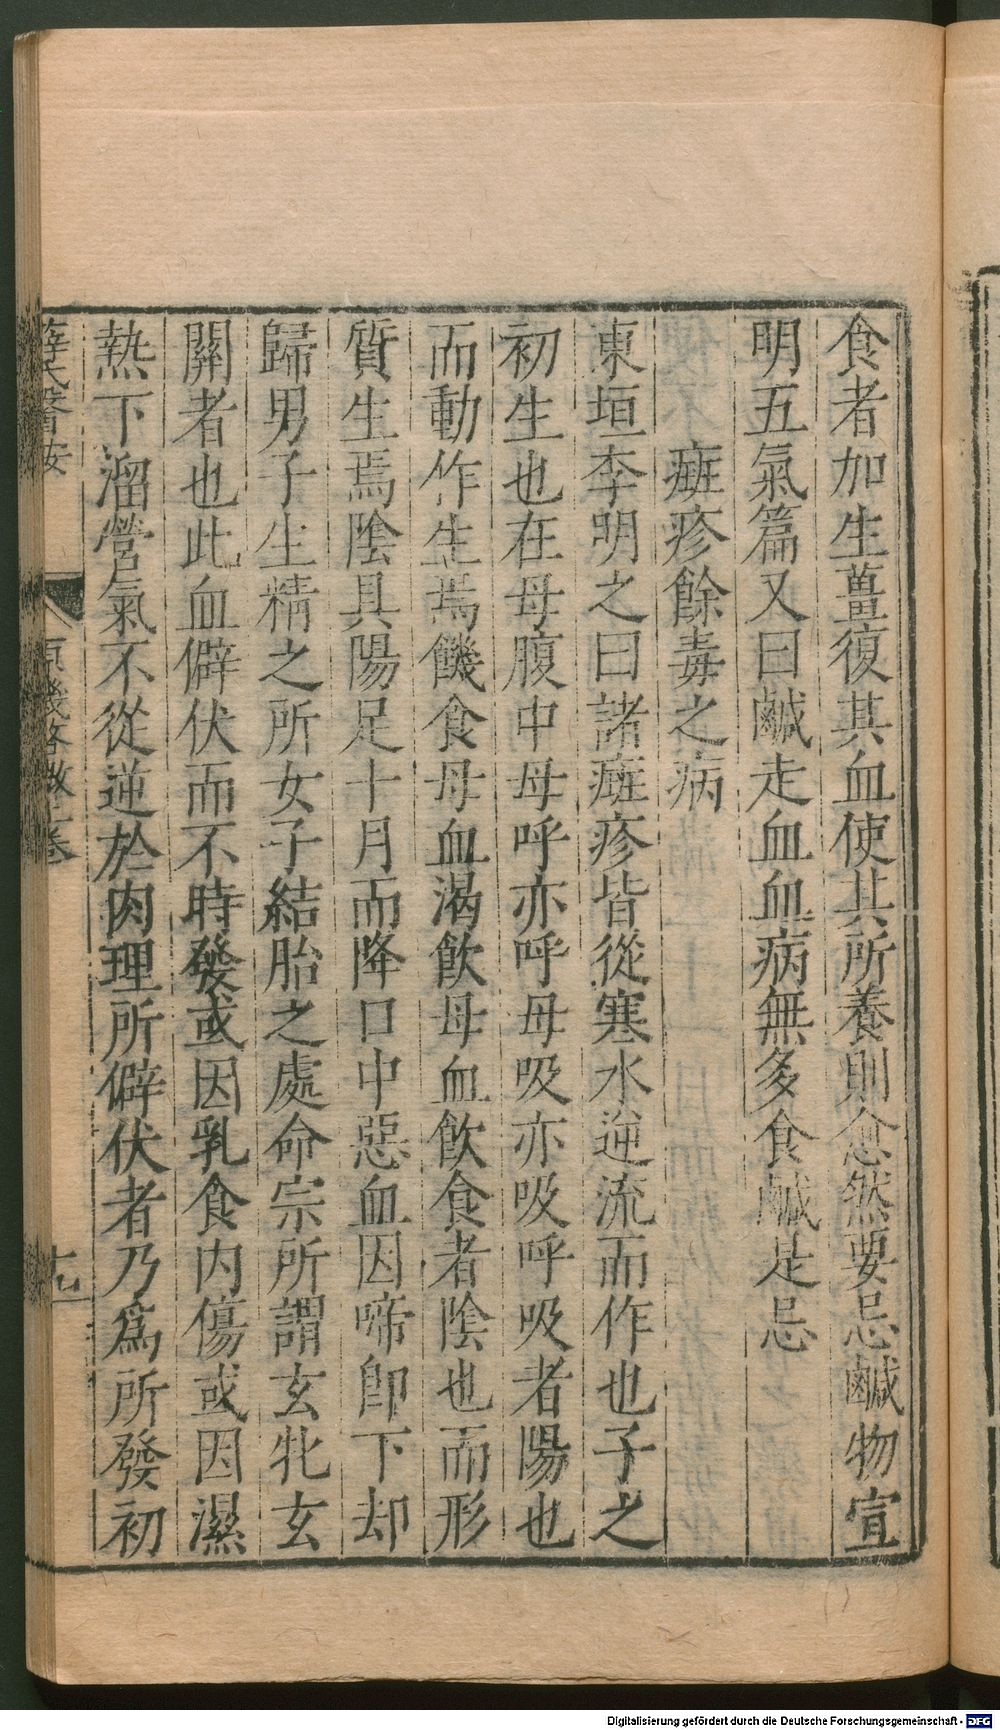 食者加生薑復其血使其所養則愈然要忌鹹物宣
明五氣篇又曰鹹走血血病無多食鹹是忌
癍疹餘毒之病
東垣李明之曰諸癍疹皆從寒水逆流而作也子之
初生也在母腹中母呼亦呼母吸亦吸呼吸者陽也
而動作生焉饑食母血渴飲母血飲食者陰也而形
質生焉陰具陽足十月而降口中惡血因啼即下却
歸男子生精之所女子結胎之處命宗所謂玄牝玄
關者也此血僻伏而不時發或因乳食内傷或因濕
熱下溜營氣不從逆於肉理所僻伏者乃爲所發初
薛氏醫按
原機啓微上卷
Digitalisierung gefördert durch die Deutsche Forschungsgemeinschaft - DFG